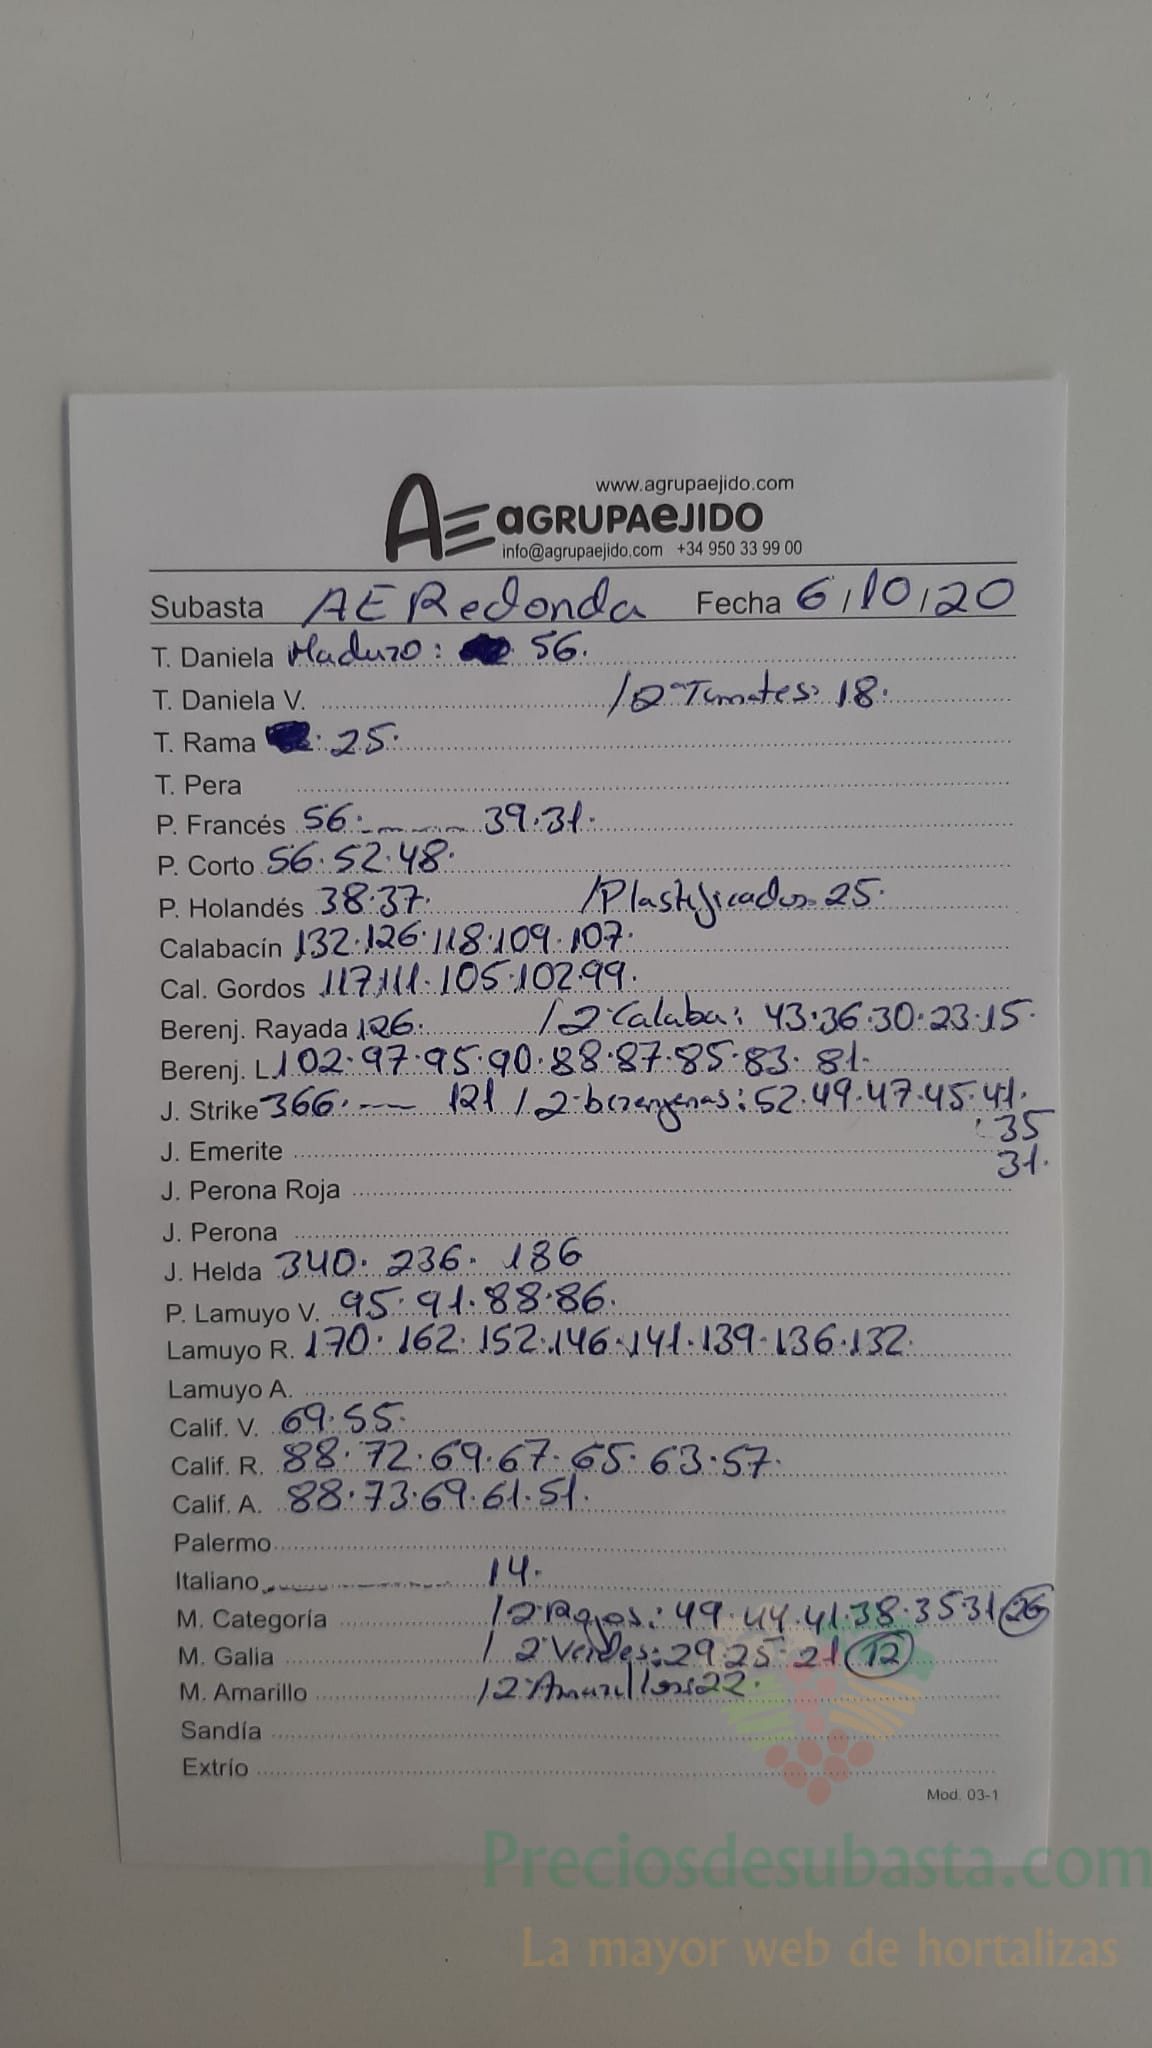 www.agrupaejido.com
AE aGRUPAeJIDO
info@agrupaejido.com +34 950 33 99 00
Subasta AE Redonda Fecha 6/10/20
T. Daniela Maduro: 56.
T. Daniela V. /2ª Tomates: 18.
T. Rama : 25.
T. Pera
P. Francés 56. 39.31.
P. Corto 56.52.48.
P. Holandés 38.37. /Plastificados 25.
Calabacín 132.126.118.109.107.
Cal. Gordos 117.111.105.102.99.
Berenj. Rayada 126. /2ª Calaba: 43.36.30.23.15.
Berenj. L 102.97.95.90.88.87.85.83.81.
J. Strike 366. 121 /2ª berenjenas: 52.49.47.45.41.
35
J. Emerite
31.
J. Perona Roja
J. Perona
J. Helda 340. 236. 186
P. Lamuyo V. 95.91.88.86.
Lamuyo R. 170.162.152.146.141.139.136.132.
Lamuyo A.
Calif. V. 69.55.
Calif. R. 88.72.69.67.65.63.57.
Calif. A. 88.73.69.61.51.
Palermo
Italiano 14.
M. Categoría /2ª Rojos: 49.44.41.38.35 31 26
M. Galia / 2ª Verdes: 29.25.21 12
M. Amarillo /2ª Amarillos: 22.
Sandía
Extrío
Mod. 03-1
Preciosdesubasta.com
La mayor web de hortalizas